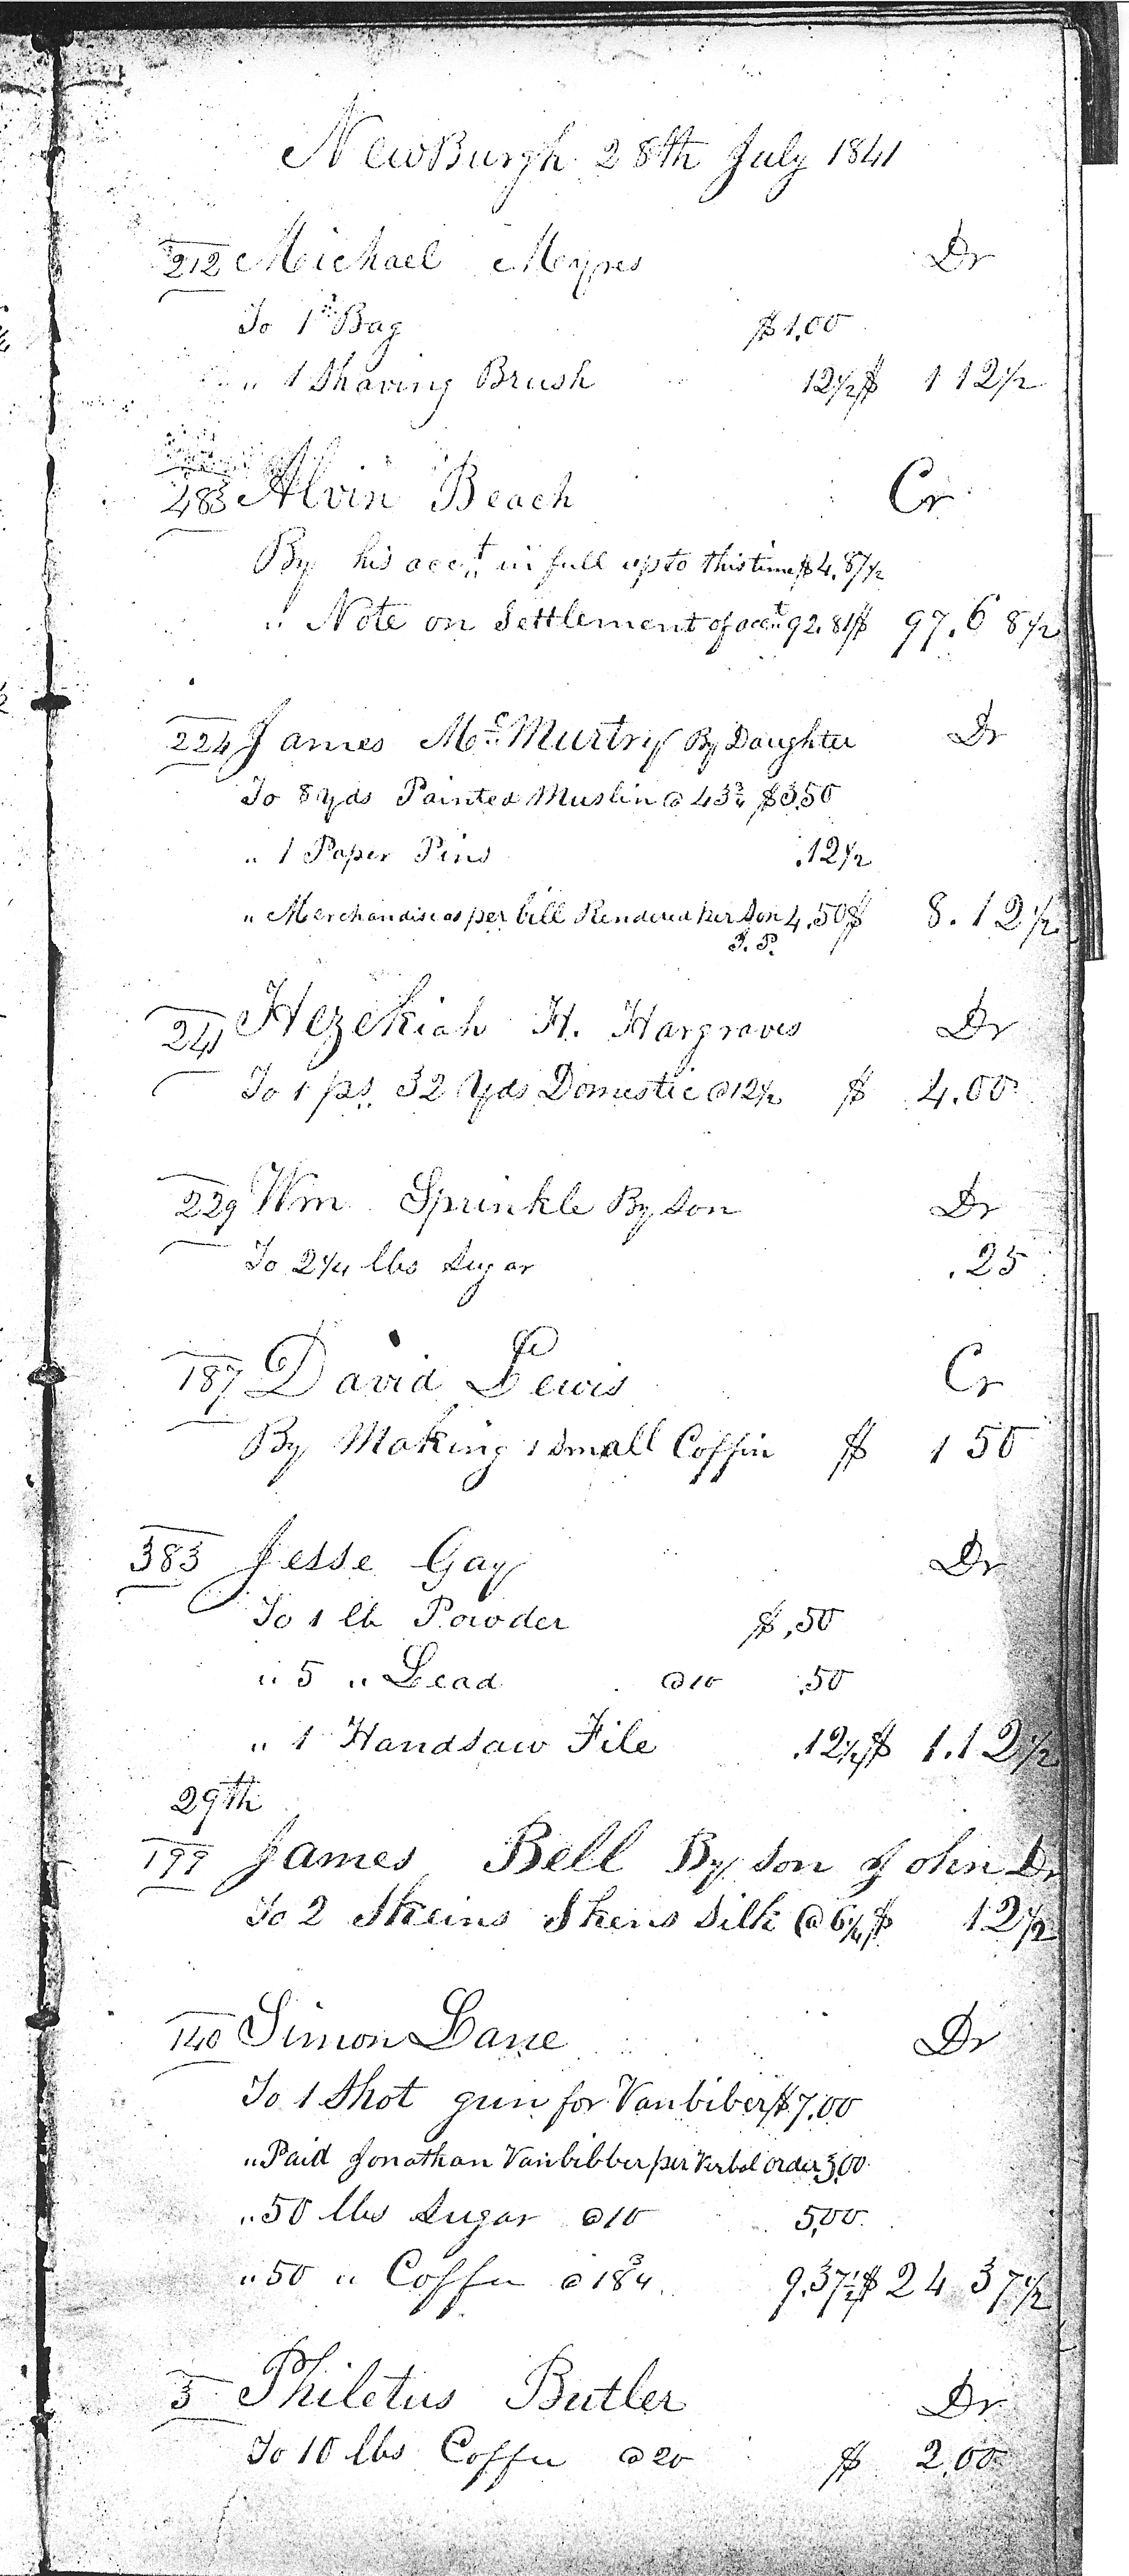 NewBurgh 28th July 1841
212 Michael Moyres Dr
To 1 Bag $1.00
" 1 Shaving Brush 12½ $ 1 12½
483 Alvin Beach Cr
By his acct in full up to this time $4.87½
" Note on Settlement of acct 92.81 $ 97.68½
224 James McMurtry By Daughter Dr
To 8 yds Painted Muslin @ 43¾ $3.50
" 1 Paper Pins .12½
" Merchandise as per bill Rendered per Son 4.50 $ 8.12½
J. P.
241 Hezekiah H. Hargraves Dr
To 1 ps. 32 Yds Domestic @ 12½ $ 4.00
229 Wm Sprinkle By Son Dr
To 2¼ lbs Sugar .25
187 David Lewis Cr
By Making 1 Small Coffin $ 1 50
383 Jesse Gay Dr
To 1 lb Powder $ .50
" 5 " Lead @ 10 .50
" 1 Handsaw File .12½ $ 1.12½
29th
199 James Bell By Son John Dr
To 2 Skeins Skens Silk @ 6¼ $ 12½
140 Simon Lane Dr
To 1 Shot gun for Vanbiber $7.00
" Paid Jonathan Vanbibber per Verbal order 3.00
" 50 lbs Sugar @ 10 5.00
" 50 " Coffee @ 18¾ 9.37½ $ 24 37½
3 Philetus Butler Dr
To 10 lbs Coffee @ 20 $ 2.00